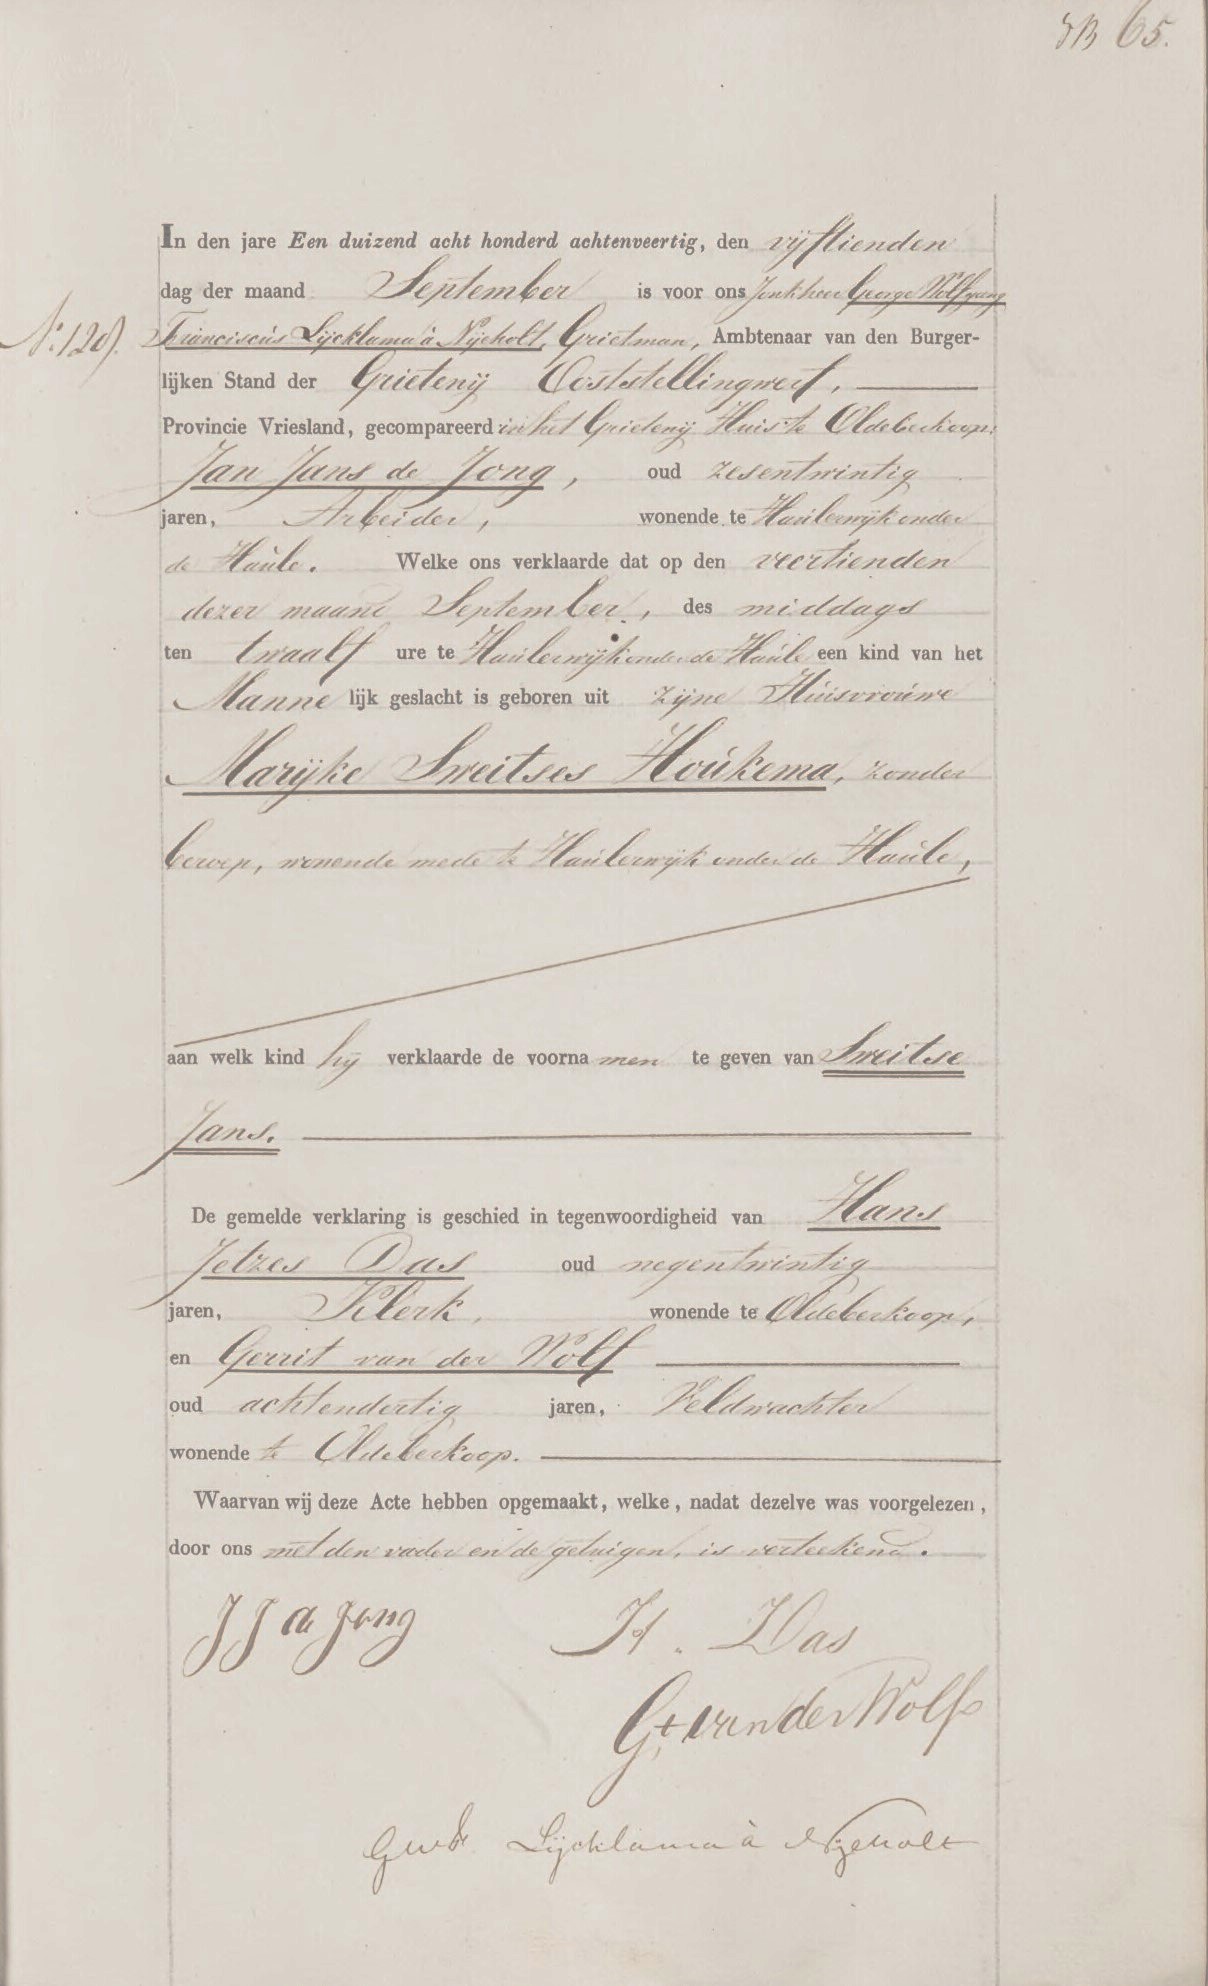 65.
In den jare Een duizend acht honderd achtenveertig, den vijftienden
dag der maand September is voor ons Jonkheer George Wolfgang
Franciscus Lijcklama à Nijeholt, Grietman, Ambtenaar van den Burger-
lijken Stand der Grietenij Ooststellingwerf,
Provincie Vriesland, gecompareerd in het Grietenij Huis te Oldeberkoop:
Jan Jans de Jong, oud zesentwintig
jaren, Arbeider, wonende te Haulerwijk onder
de Haule. Welke ons verklaarde dat op den veertienden
dezer maand September, des middags
ten twaalf ure te Haulerwijk onder de Haule een kind van het
Manne lijk geslacht is geboren uit zijne Huisvrouwe
Marijke Sweitses Houkema, zonder
beroep, wonende mede te Haulerwijk onder de Haule,
aan welk kind hij verklaarde de voorna men te geven van Sweitse
Jans.
De gemelde verklaring is geschied in tegenwoordigheid van Hans
Jetzes Das oud negentwintig
jaren, Klerk, wonende te Oldeberkoop,
en Gerrit van der Wolf
oud achtendertig jaren, Veldwachter
wonende te Oldeberkoop.
Waarvan wij deze Acte hebben opgemaakt, welke, nadat dezelve was voorgelezen,
door ons met den vader en de getuigen, is verteekend.
J J de Jong H. Das
Gt van der Wolf
GWF Lijcklama à Nijeholt